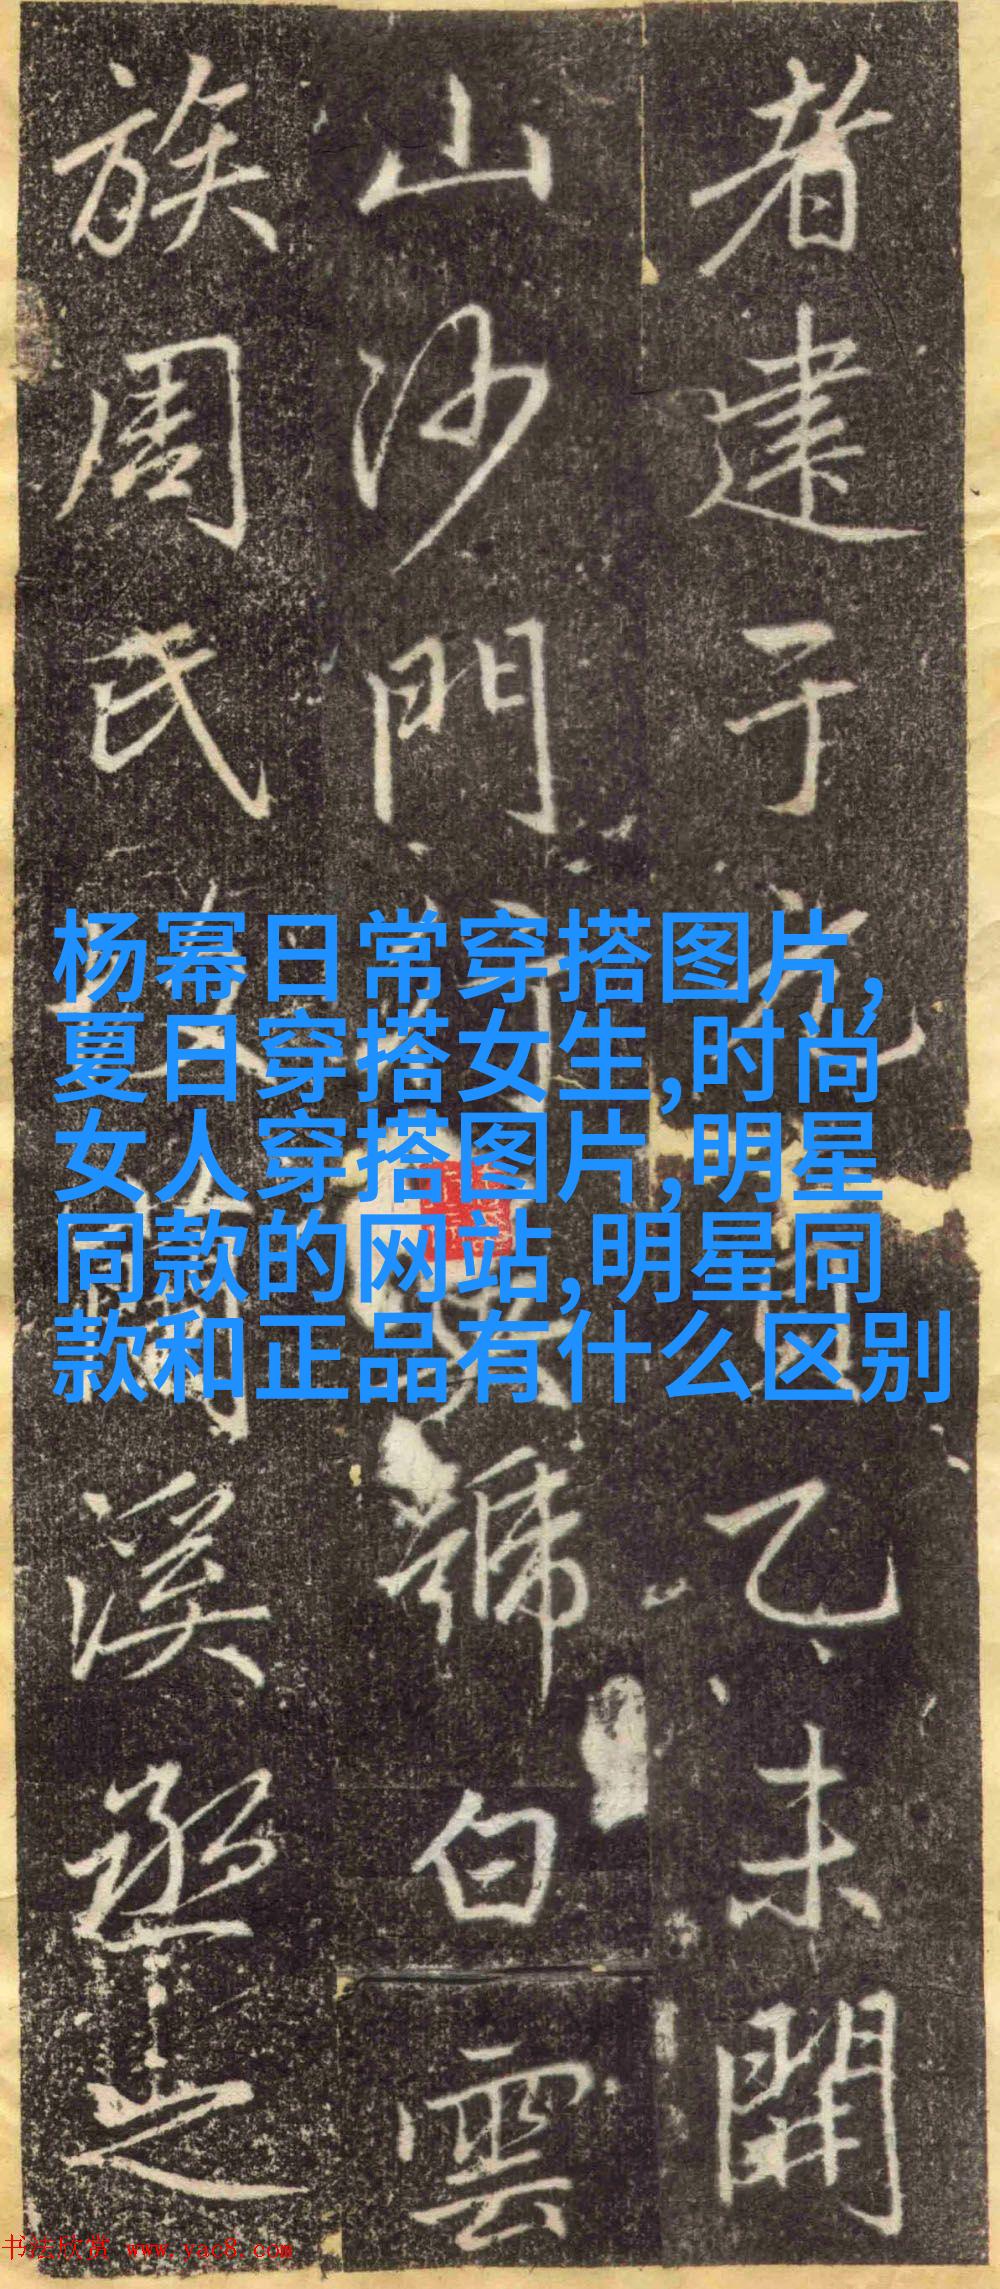 者建于乙未開
山沙門號白雲
族周氏溪丞之
杨幂日常穿搭图片,
夏日穿搭女生,时尚
女人穿搭图片,明星
同款的网站,明星同
款和正品有什么区别
书法欣赏 www.yac8.com